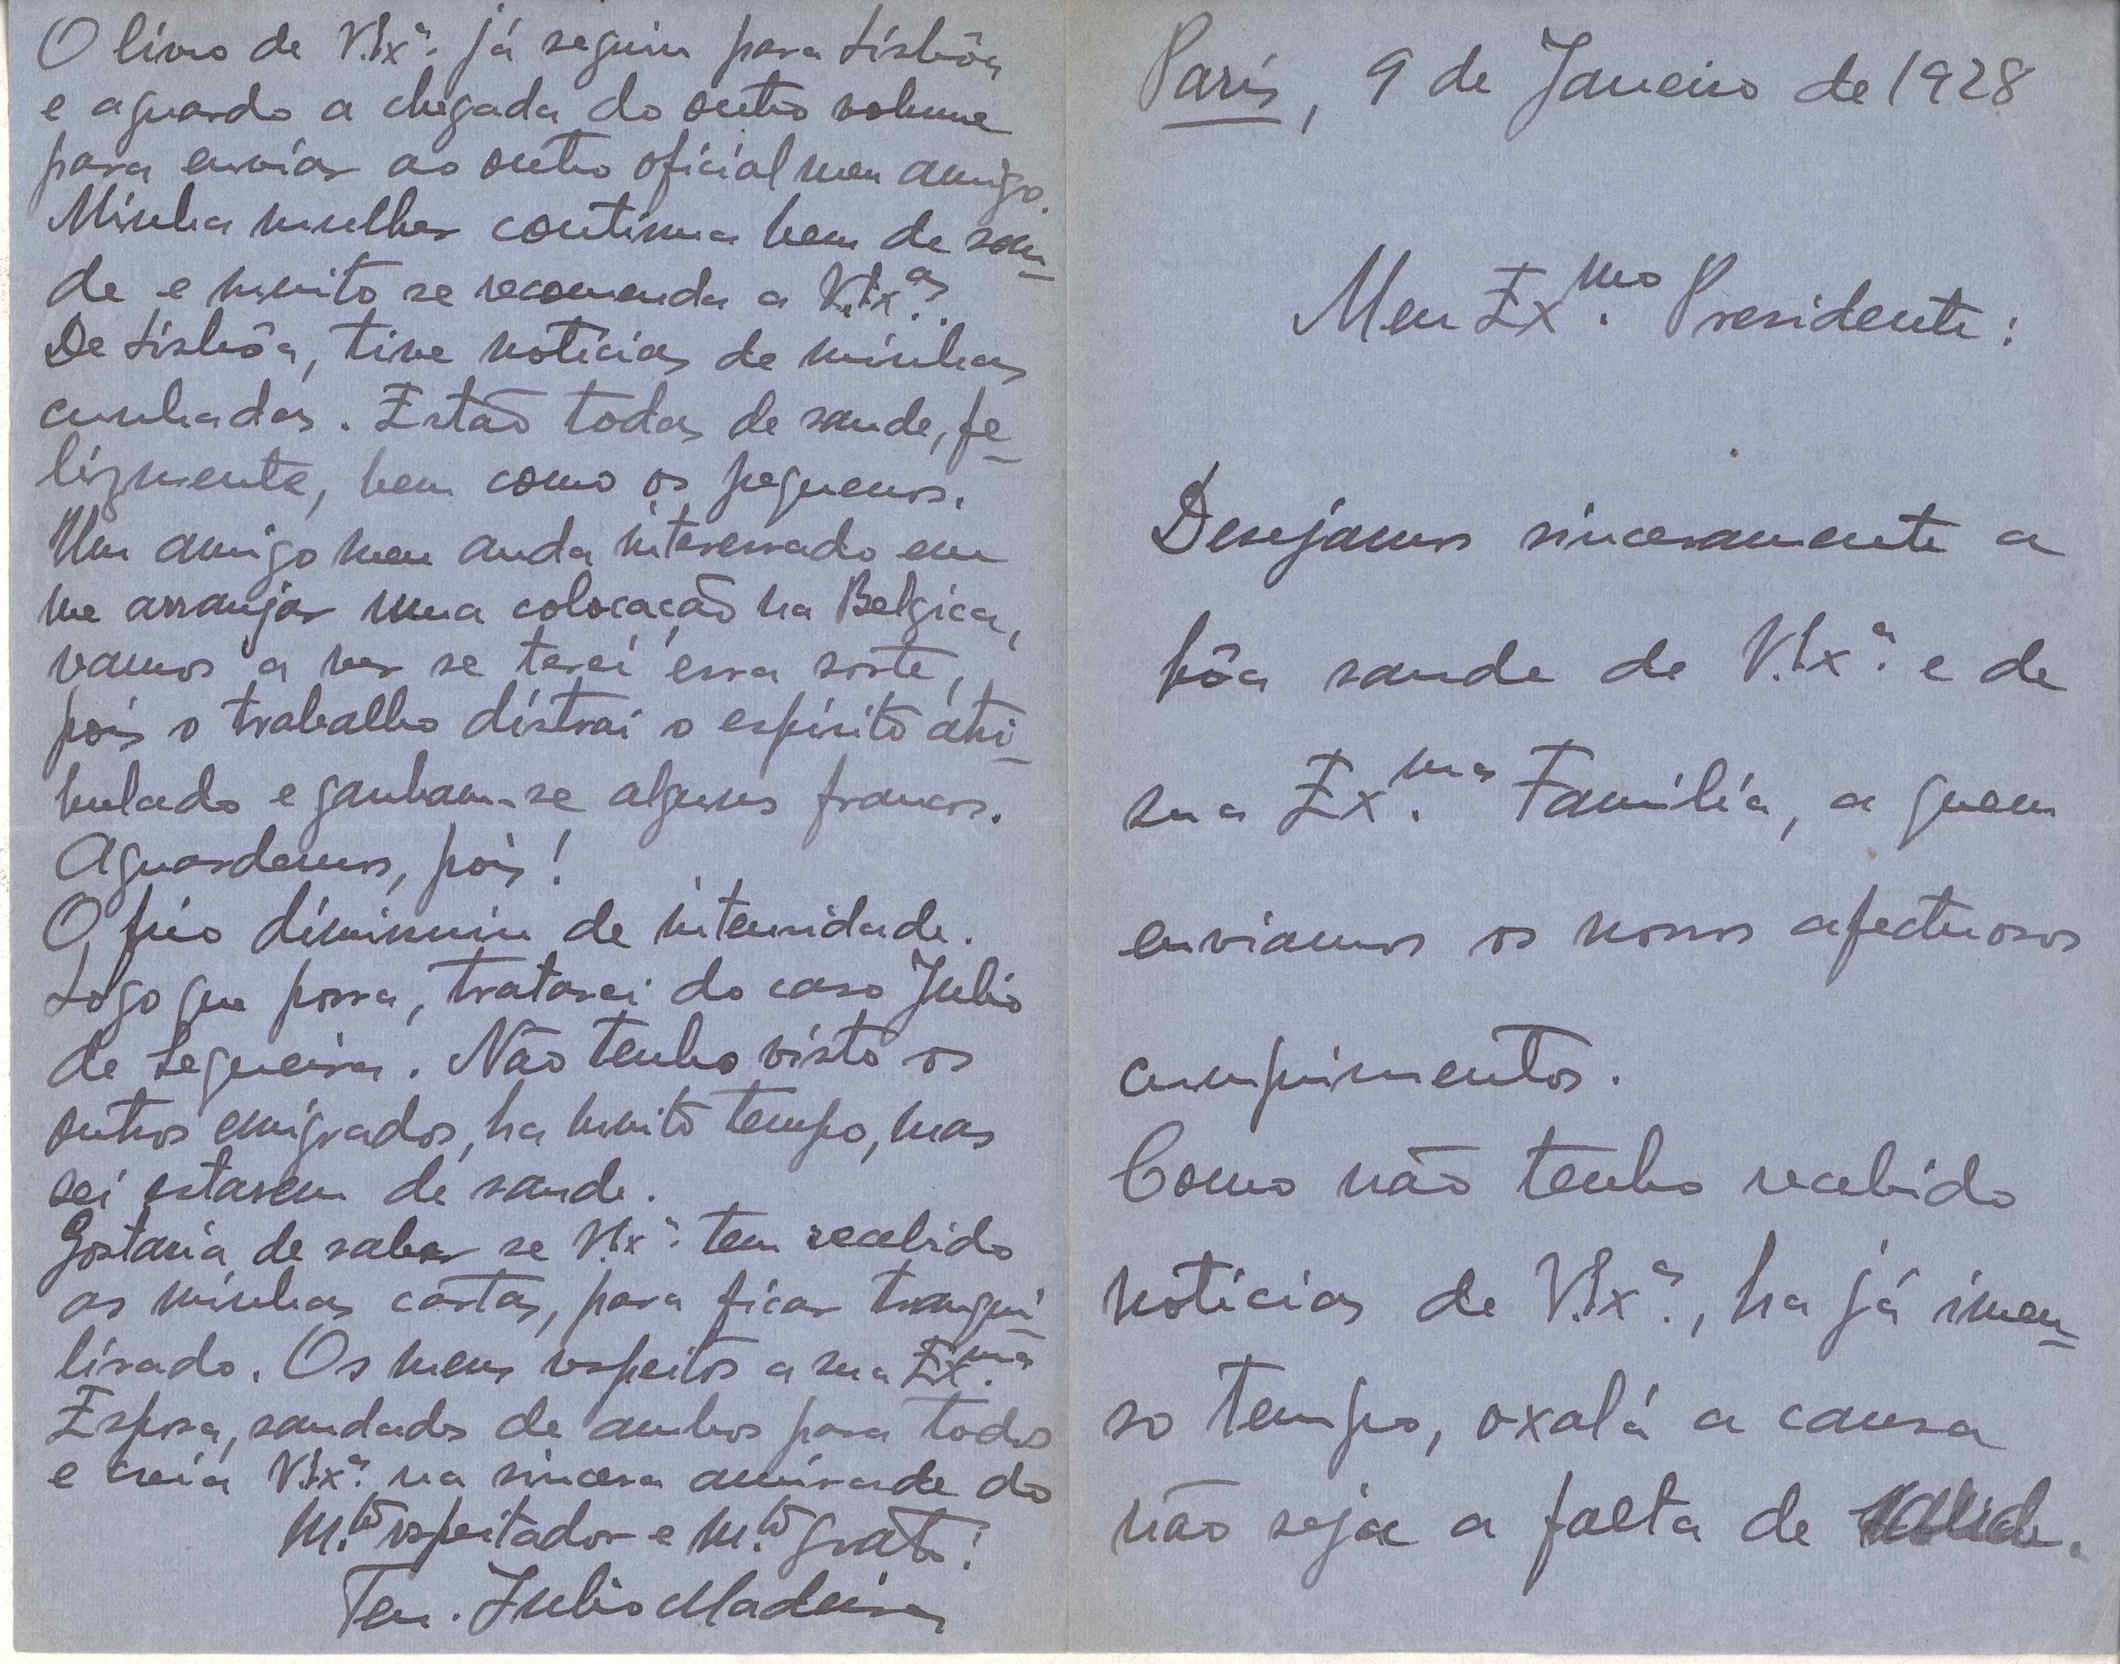 París, 9 de Janeiro de 1928
Meu Ex.mo Presidente:
Desejamos sinceramente a
bôa saude de V.Ex.ª e de
sua Ex.ma Família, a quem
enviamos os nossos afectuosos
cumprimentos.
Como não tenho recebido
notícias de V.Ex.ª, ha já imen-
so tempo, oxalá a causa
não seja a falta de saude.
O livro de V.Ex.ª já seguiu para Lisbôa
e aguardo a chegada do outro volume
para enviar ao outro oficial meu amigo.
Minha mulher continua bem de sau-
de e muito se recomenda a V.Ex.ªs.
De Lisbôa, tive notícias de minhas
cunhadas. Estão todas de saude, fe-
lizmente, bem como os pequenos.
Um amigo meu anda interessado em
me arranjar uma colocação na Belgica,
vamos a ver se terei essa sorte,
pois o trabalho distrai o espírito atri-
bulado e ganham-se alguns francos.
Aguardemos, pois!
O frio diminuiu de intensidade.
Logo que possa, tratarei do caso Julio
de Sequeira. Não tenho visto os
outros emigrados, ha muito tempo, mas
sei estarem de saude.
Gostaria de saber se V.Ex.ª tem recebido
as minhas cartas, para ficar tranqui-
lisado. Os meus respeitos a sua Ex.ma
Esposa, saudades de ambos para todos
e creia V.Ex.ª na sincera amisade do
M.to respeitador e m.to grato:
Ten. Julio Madeira